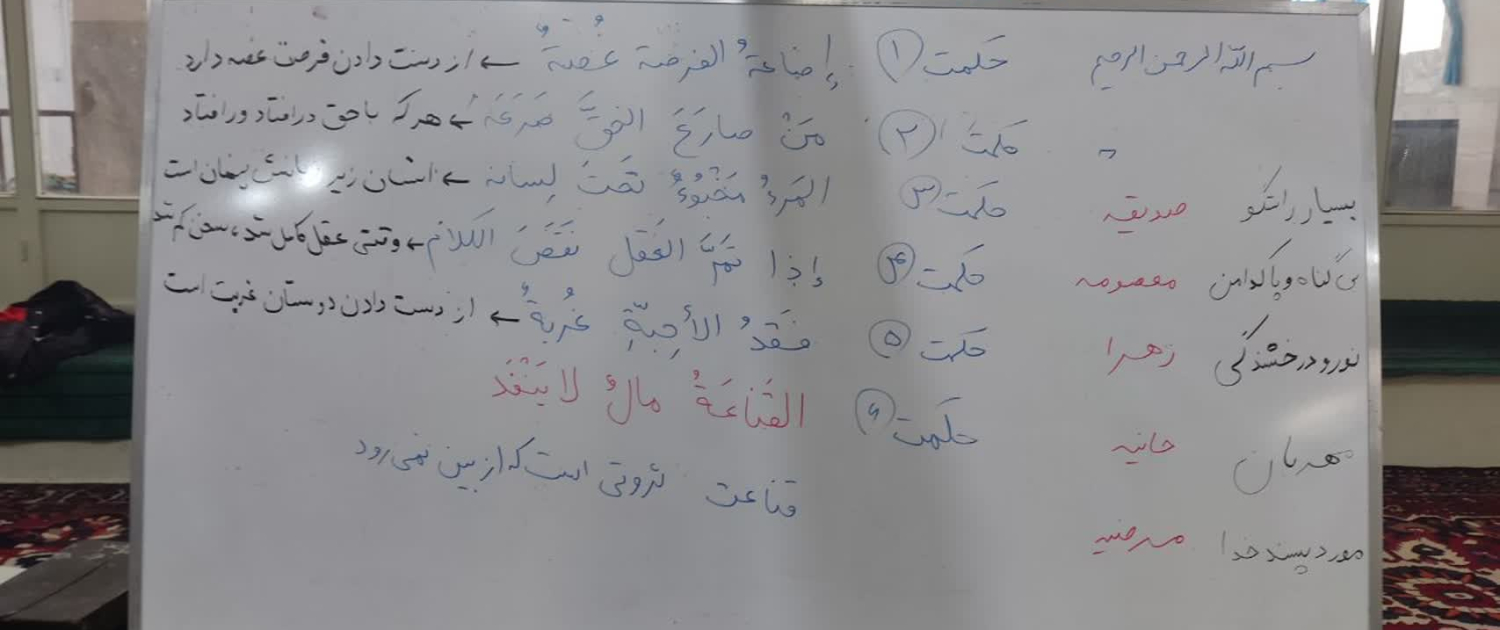 بسم الله الرحمن الرحیم
حکمت ۱ إضاعةُ الفرصة غُصّةٌ ← از دست دادن فرصت غصه دارد
حکمت ۲ مَنْ صارَعَ الحَقَّ صَرَعَهُ ← هر که با حق درافتاد ورافتاد
حکمت ۳ المَرءُ مَخْبُوءٌ تَحتَ لِسانه ← انسان زیر زبانش پنهان است
حکمت ۴ إذا تَمَّ العَقل نَقَصَ الکلام ← وقتی عقل کامل شد، سخن کم شد
حکمت ۵ فَقدُ الأَحِبّةِ غُربةٌ ← از دست دادن دوستان غربت است
حکمت ۶ القَناعَةُ مالٌ لا یَنْفَد
قناعت ثروتی است که از بین نمی رود
بسیار راستگو صدیقه
بی گناه و پاکدامن معصومه
نور و درخشندگی زهرا
مهربان حانیه
مورد پسند خدا مرضیه